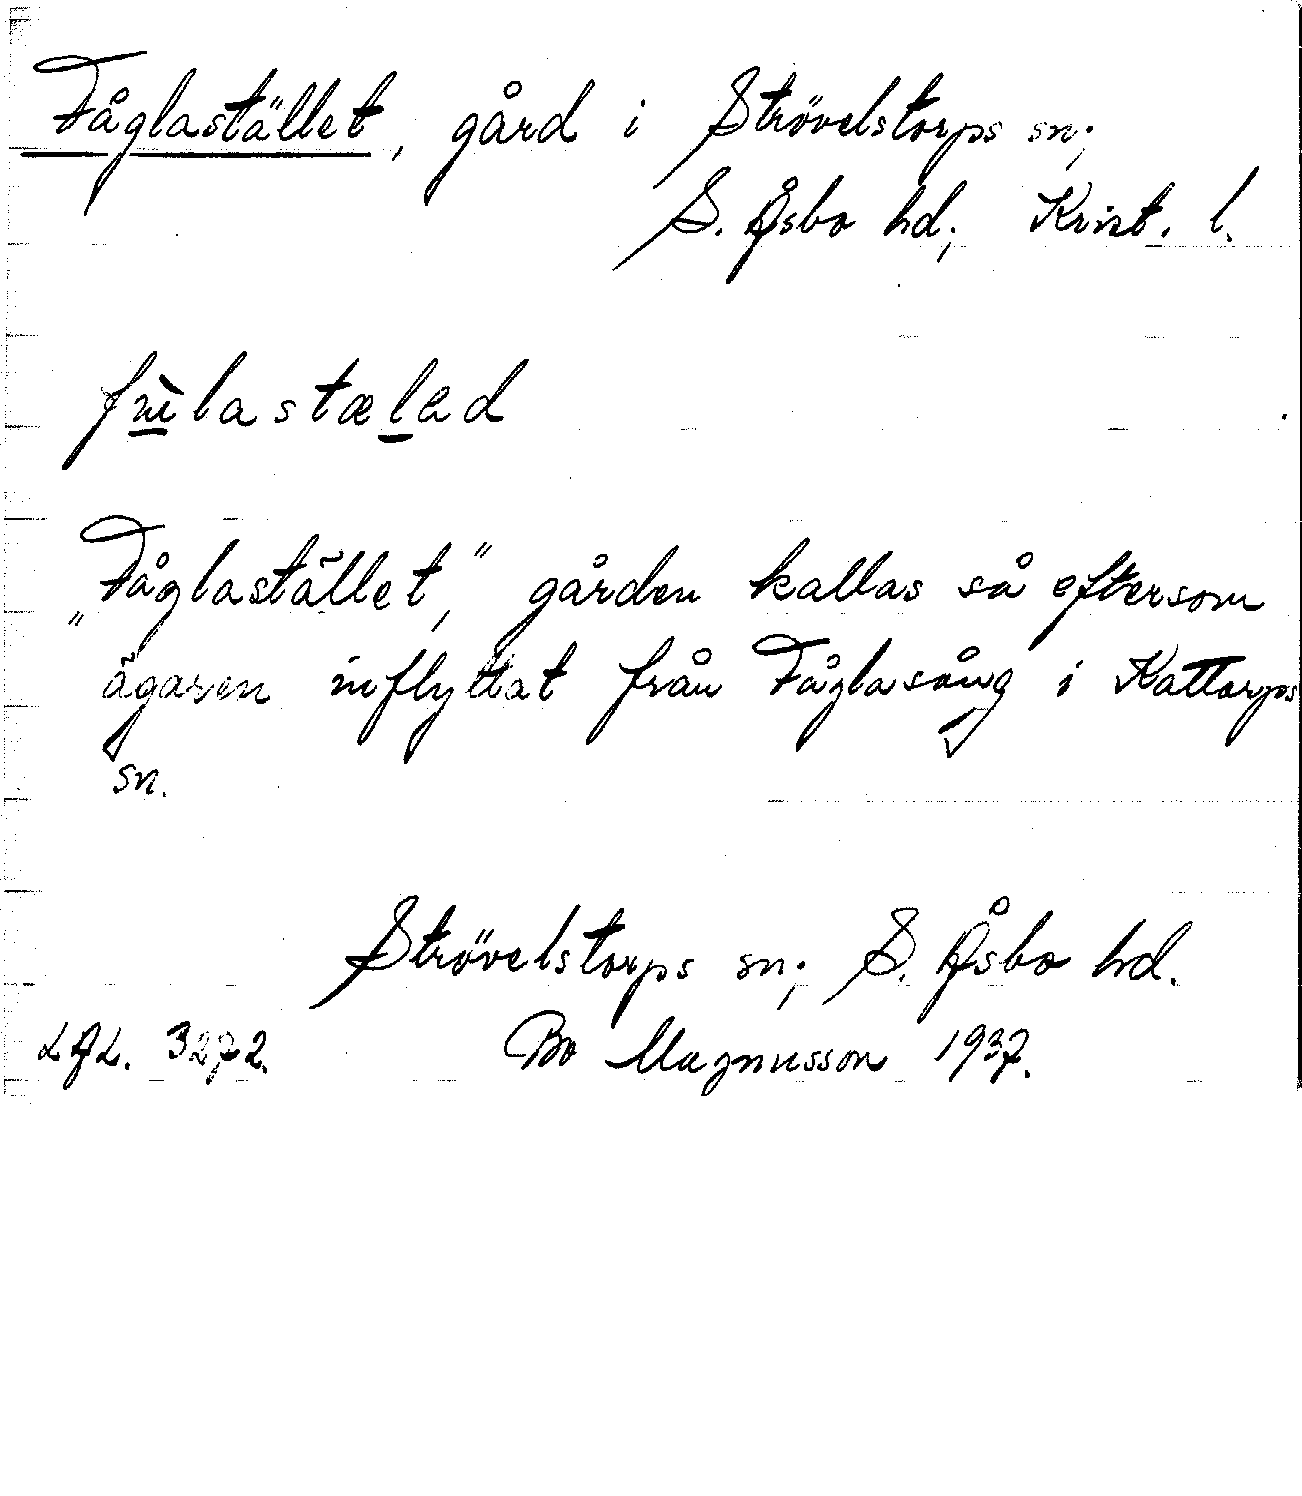 Fåglastället, gård i Strövelstorps sn;
S. Åsbo hd; Krist. l.
"Fåglastället," gården kallas så eftersom
ägaren inflyttat från Fåglasång i Kattarps
sn.
Strövelstorps sn; S. Åsbo hd.
LAL. 3272. Bo Magnusson 1937.